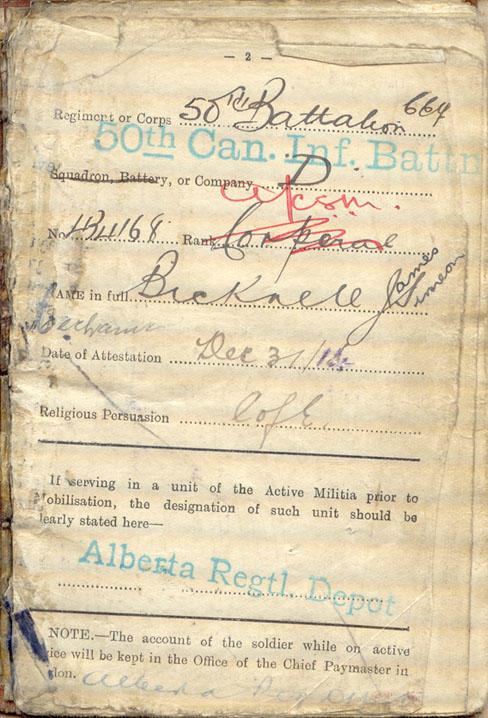 — 2 —
664
Regiment or Corps 50th Battalion
50th Can. Inf. Battn
Squadron, Battery, or Company D
No Rank Corporal
NAME in full Bicknell James Simeon
Date of Attestation Dec 31/
Religious Persuasion C of E.
If serving in a unit of the Active Militia prior to
Mobilisation, the designation of such unit should be
clearly stated here—
Alberta Regtl. Depot
NOTE.—The account of the soldier while on active
ice will be kept in the Office of the Chief Paymaster in
don. Alberta